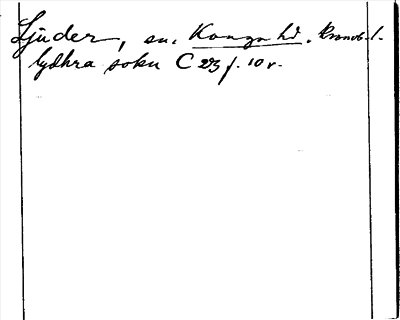 Ljuder, sn. Konga hd. Kronob. l.
lydhra sokn C 23 f. 10 v.